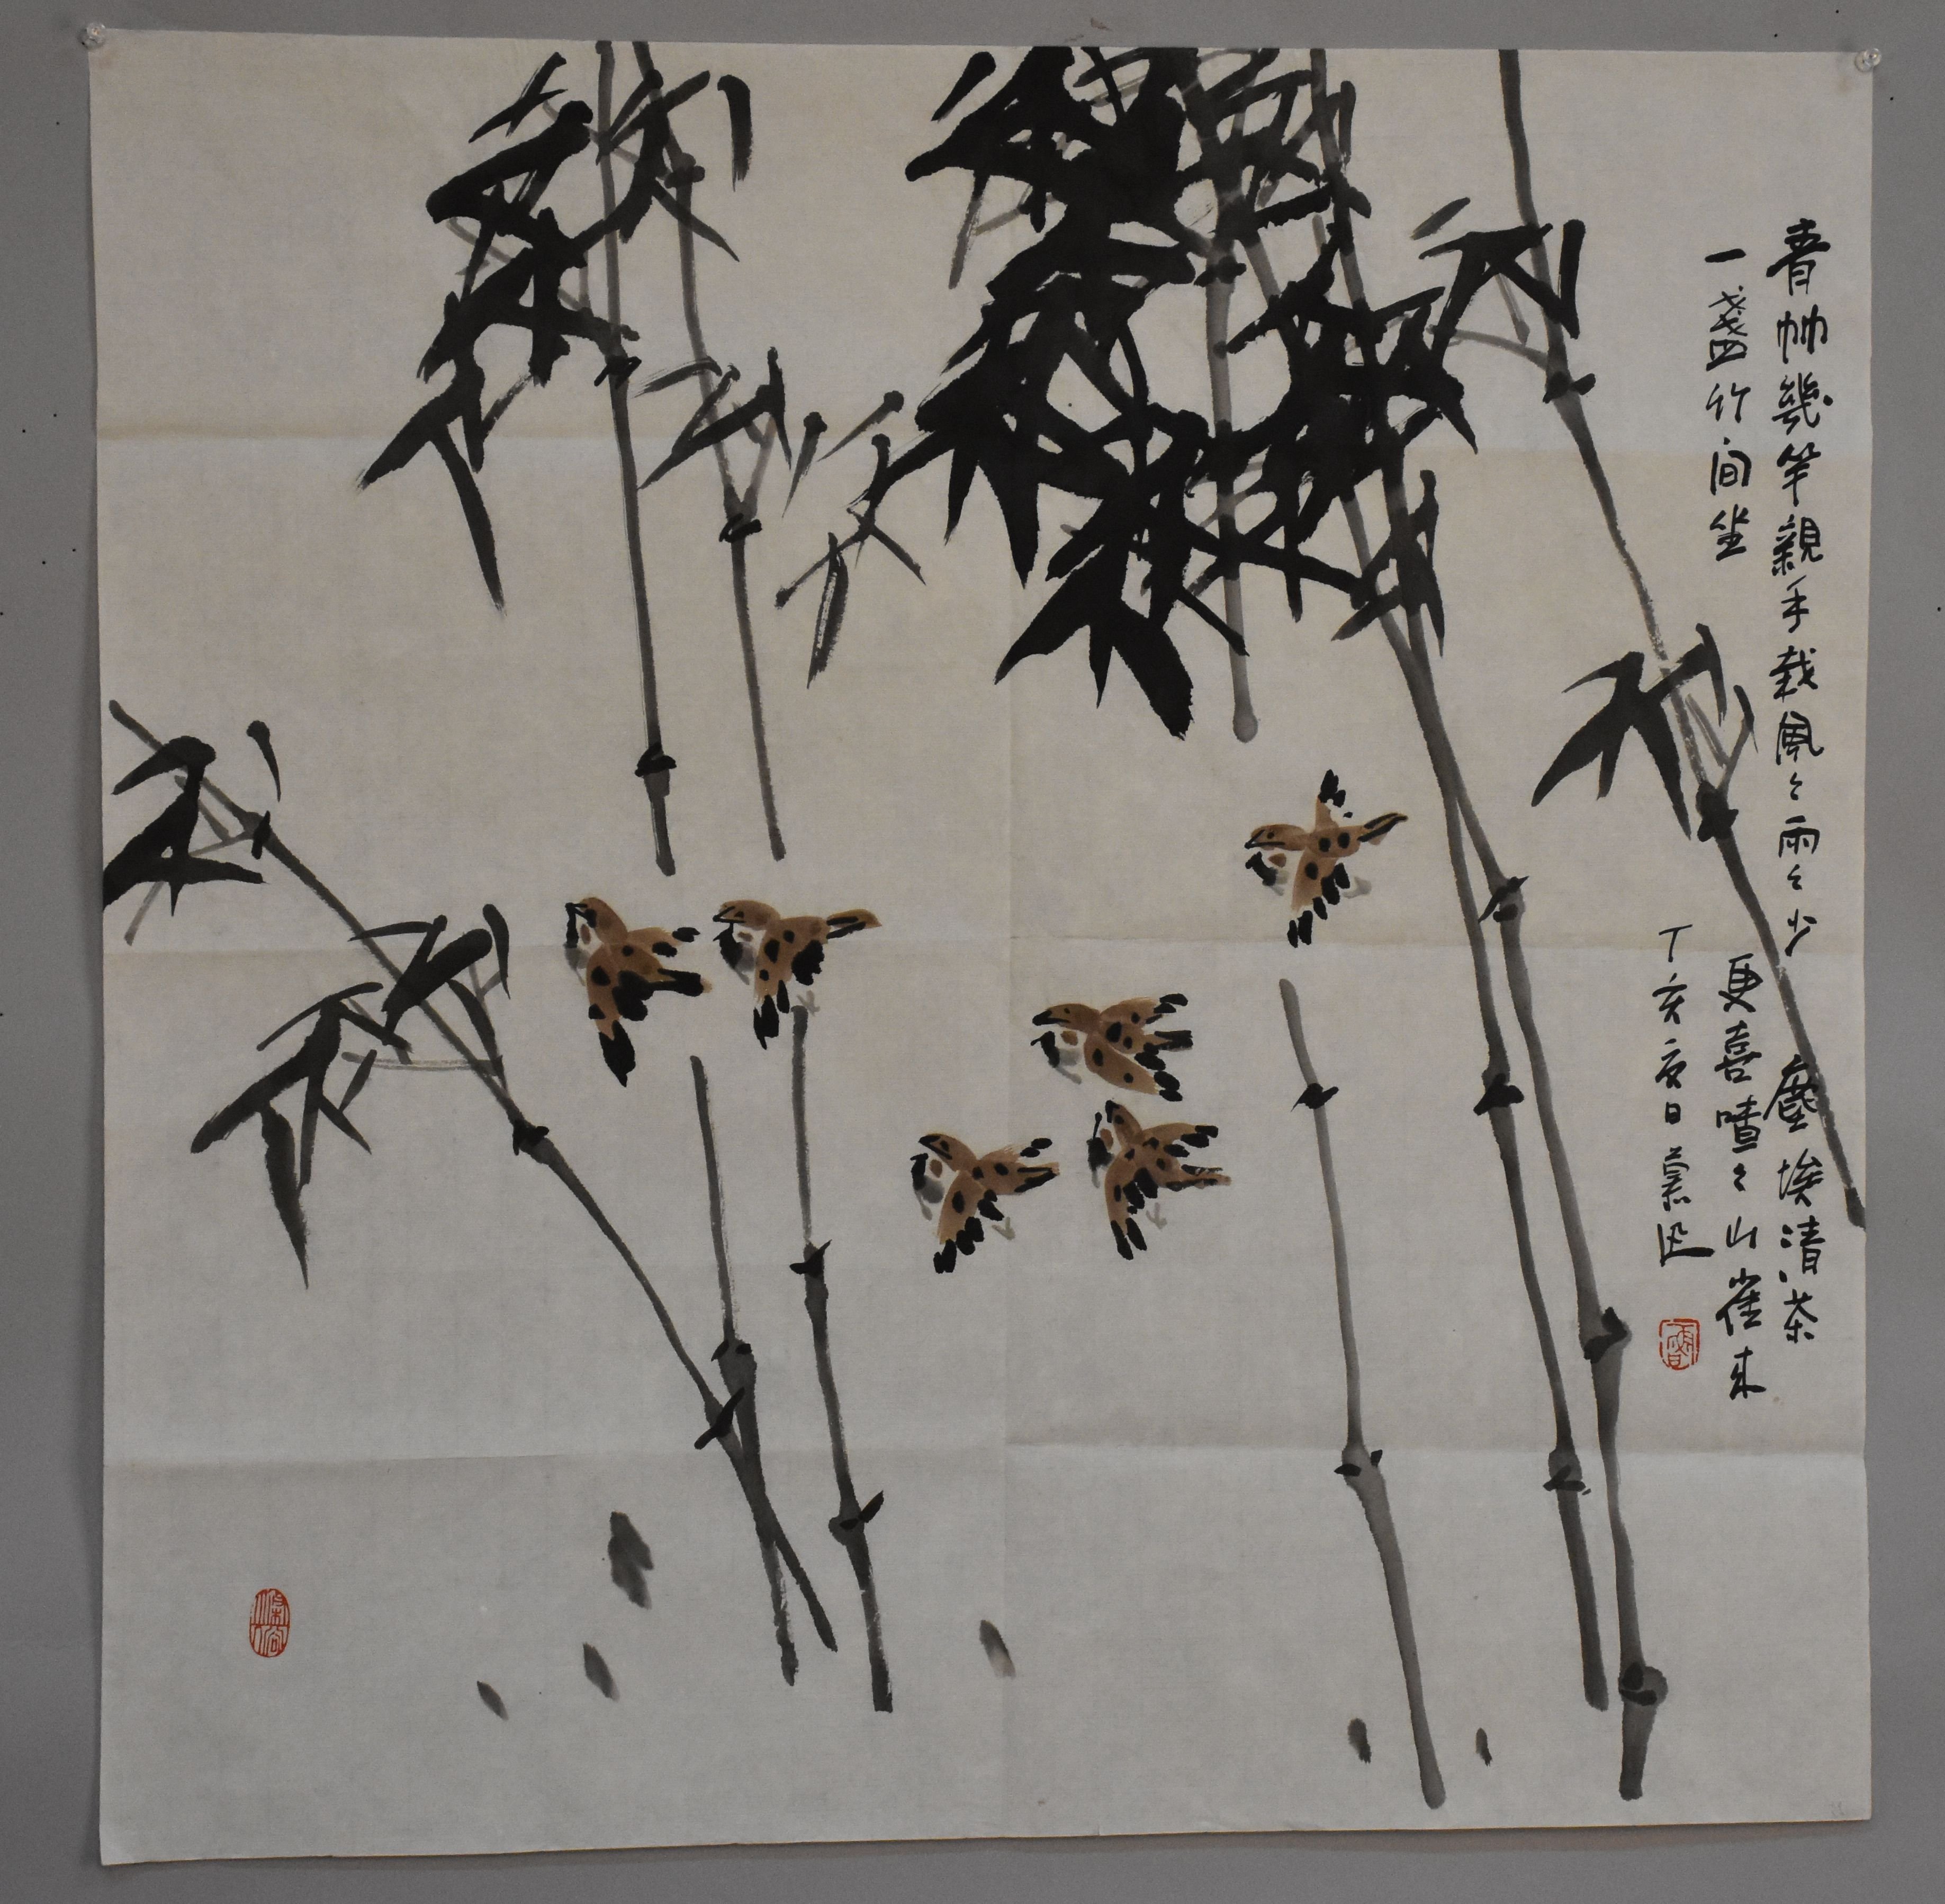 青帥幾竿親手栽風々雨々少塵埃清茶
一盞竹间坐更喜喳々山雀来
丁亥日